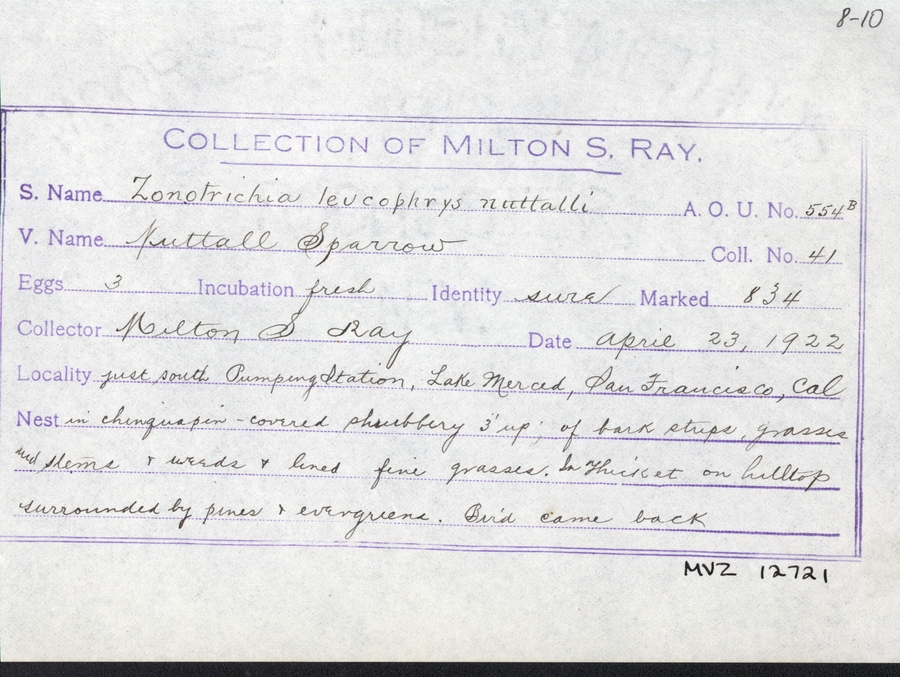 8-10
COLLECTION OF MILTON S. RAY.
S. Name Zonotrichia leucophrys nuttalli A. O. U. No. 554B
V. Name Nuttall Sparrow Coll. No. 41
Eggs 3 Incubation fresh Identity sure Marked 834
Collector Milton S Ray Date april 23, 1922
Locality just south Pumping Station, Lake Merced, San Francisco, Cal
Nest in chinquapin-covered shrubbery 3' up; of bark strips, grasses
stems & weeds & lined fine grasses. In Thicket on hilltop
surrounded by pines & evergreens. Bird came back
MVZ 12721